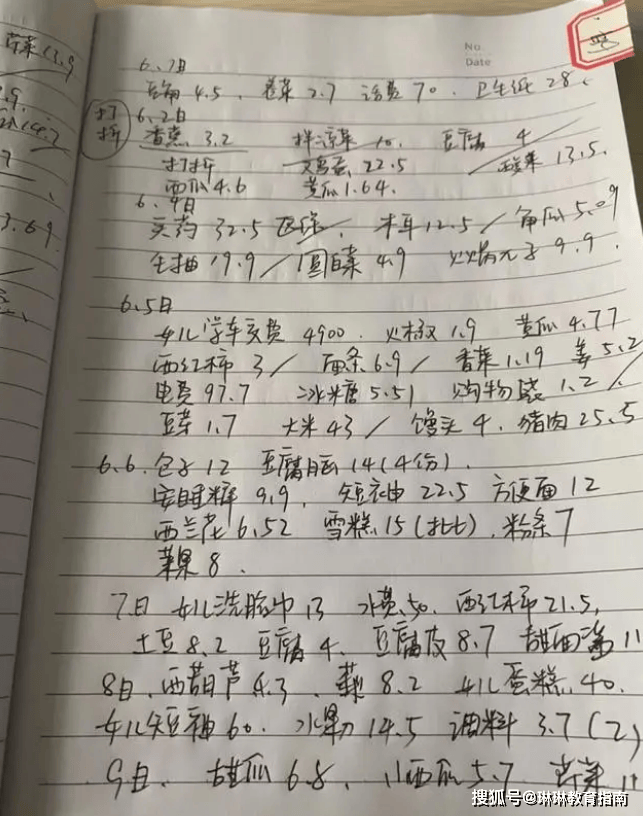 No.
Date
6.1日
豆角 4.5、卷菜 2.7 话费 70、卫生纸 28、
打折
6.2日
香蕉 3.2 拌凉菜 10、豆腐 4 /
打折 鸡蛋 22.5 / 酸菜 13.5、
西瓜 4.6 黄瓜 1.64、
6.4日
买药 32.5 木耳 12.5 / 角瓜 5.09
生抽 19.9 / 圆白菜 4.9 火锅丸子 9.9、
6.5日
女儿学车交费 4900、1.9 黄瓜 4.77
西红柿 3 / 面条 6.9 / 香菜 1.19 姜 5.2
电费 97.7 冰糖 5.51 购物袋 1.2 /
豆芽 1.7 大米 43 / 馒头 4、猪肉 25.5
6.6、包子 12 豆腐脑 14 (4份)、
9.9、短衣袖 22.5 方便面 12
西兰花 6.52 雪糕 15 (批)、粉条 7
苹果 8、
7日 女儿洗脸巾 13 水费 50、西红柿 21.5、
土豆 8.2 豆腐 4、豆腐皮 8.7 甜面酱 11
8日、西葫芦 4.3、8.2 女儿蛋糕 40、
女儿短袖 60、水果 14.5 调料 3.7 (2)
9日、甜瓜 6.8、小西瓜 5.7 芹菜 11
搜狐号@琳琳教育指南